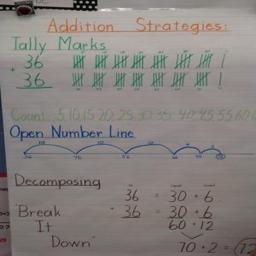 Addition Strategies:
Tally Marks
36
+ 36
Count: 5, 10, 15, 20, 25, 30, 35, 40, 45, 55, 60,
Open Number Line
Decomposing
36 = 30 + 6
"Break + 36 = 30 + 6
It 60 + 12
Down" 70 + 2 = 72